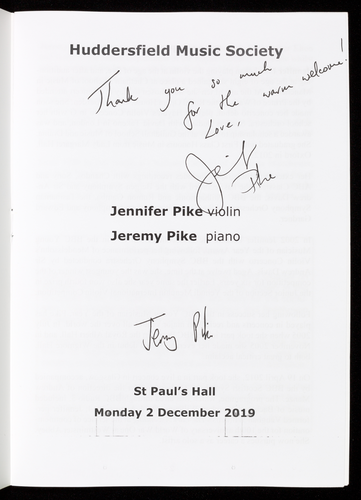 Huddersfield Music Society
Thank you so much
for the warm welcome!
Love,
Jennifer Pike
Jennifer Pike violin
Jeremy Pike piano
Jeremy Pike
St Paul's Hall
Monday 2 December 2019